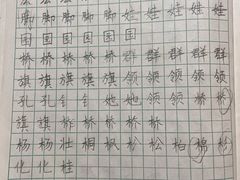 脚 脚 脚 脚 脚 娃 娃 娃 娃
国 国 国 国 国 国
桥 桥 桥 桥 桥 群 群 群 群
旗 旗 旗 旗 旗 领 领 领 领
孔 孔 钅 钅 她 她 领 领 桥 桥
旗 旗 桥 桥 桥 桥 桥
杨 杨 壮 桐 枫 松 松 柏 棉 杉
化 化 桂